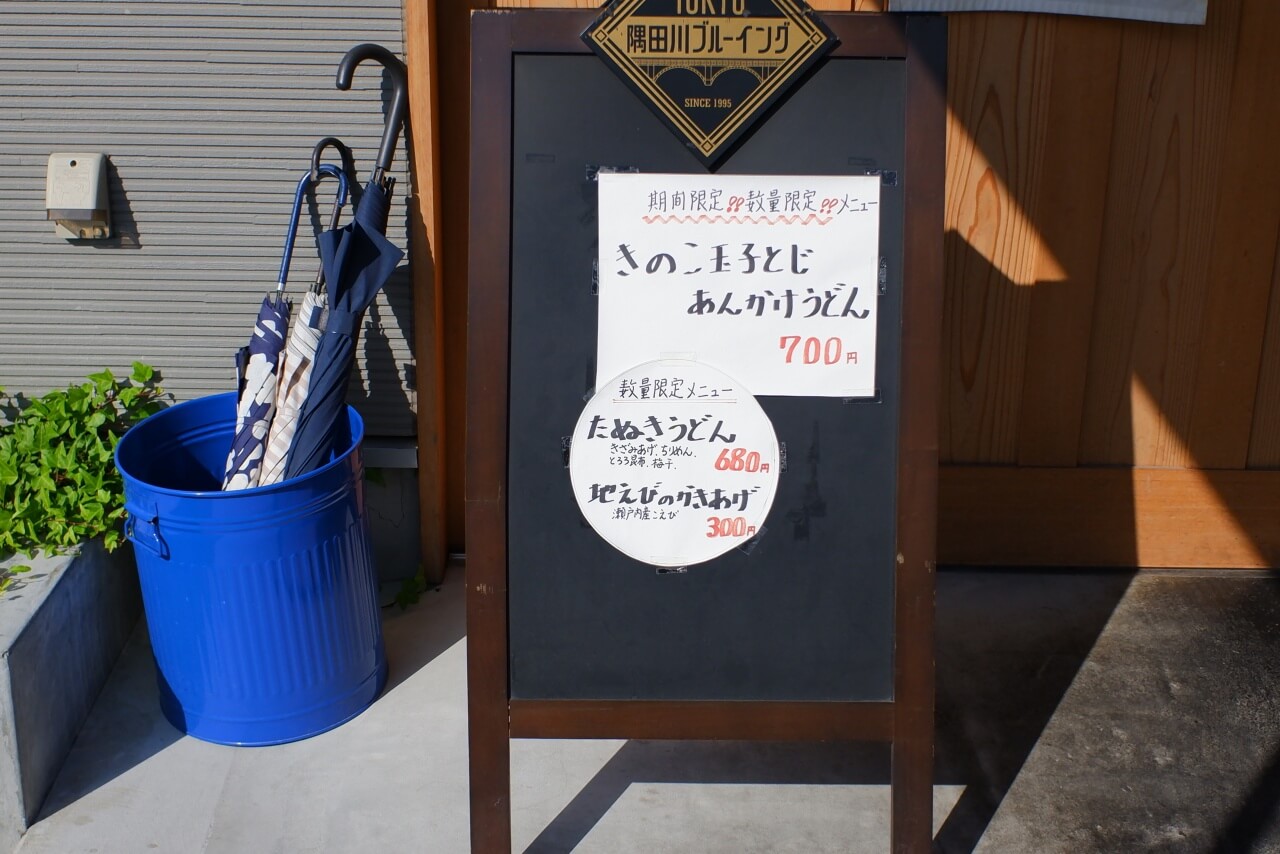 TOKYO
隅田川ブルーイング
SINCE 1995
期間限定!!数量限定!!メニュー
きのこ玉子とじ
あんかけうどん
700円
数量限定メニュー
たぬきうどん
きざみあげ、ちりめん、
とろろ昆布、梅干、
680円
地えびのかきあげ
瀬戸内産こえび
300円